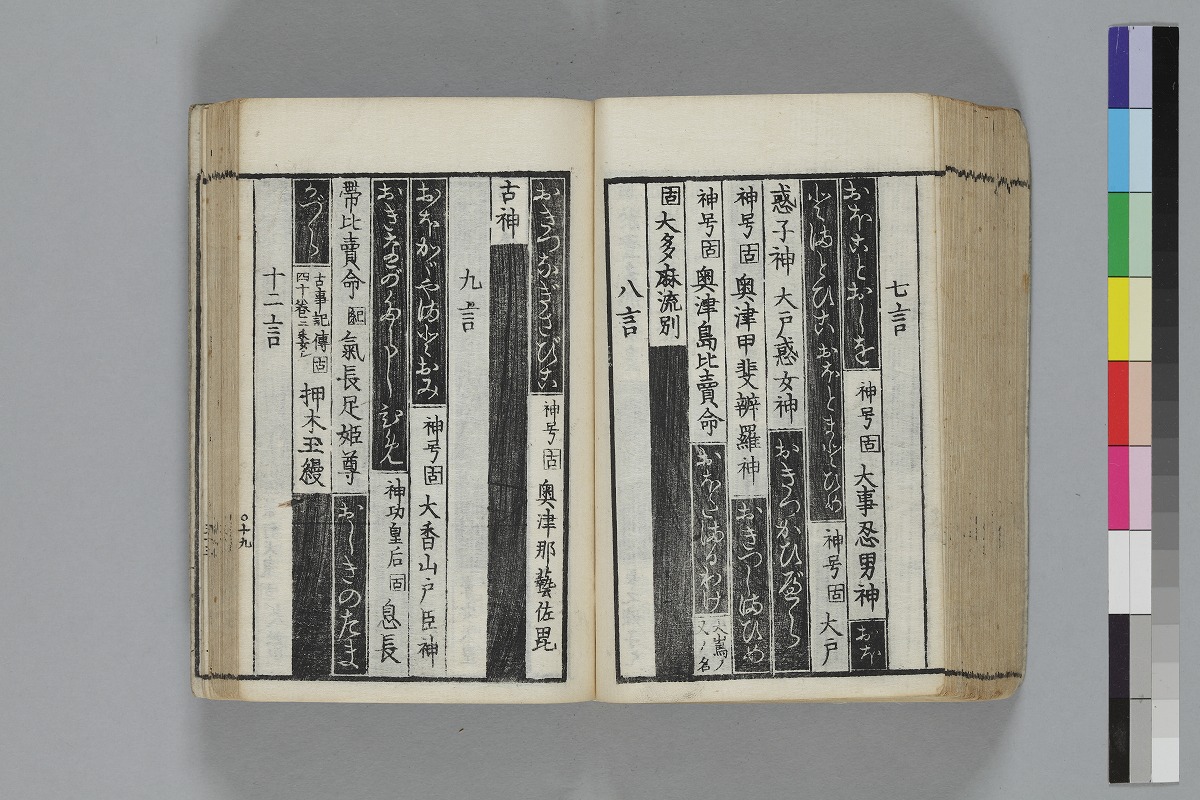 七言
おほことおしを 神号 固 大事忍男神 おほ
とまとひこ おほとまとひめ 神号 固 大戸
惑子神 大戸惑女神 おきつかひべら
神号 固 奥津甲斐辨羅神 おきつしまひめ
神号 固 奥津島比賣命 おほたまるわけ 大嶌ノ又ノ名
固 大多麻流別
八言
おきつなぎさびこ 神号 固 奥津那藝佐毘
古神
九言
おほかぐやまとおみ 神号 固 大香山戸臣神
おきながたらしひめ 神功皇后 固 息長
帶比賣命 紀 氣長足姫尊 おしきのたま
かづら 古事記傳四十卷ニ委シ 固 押木玉縵
十二言
〇十九